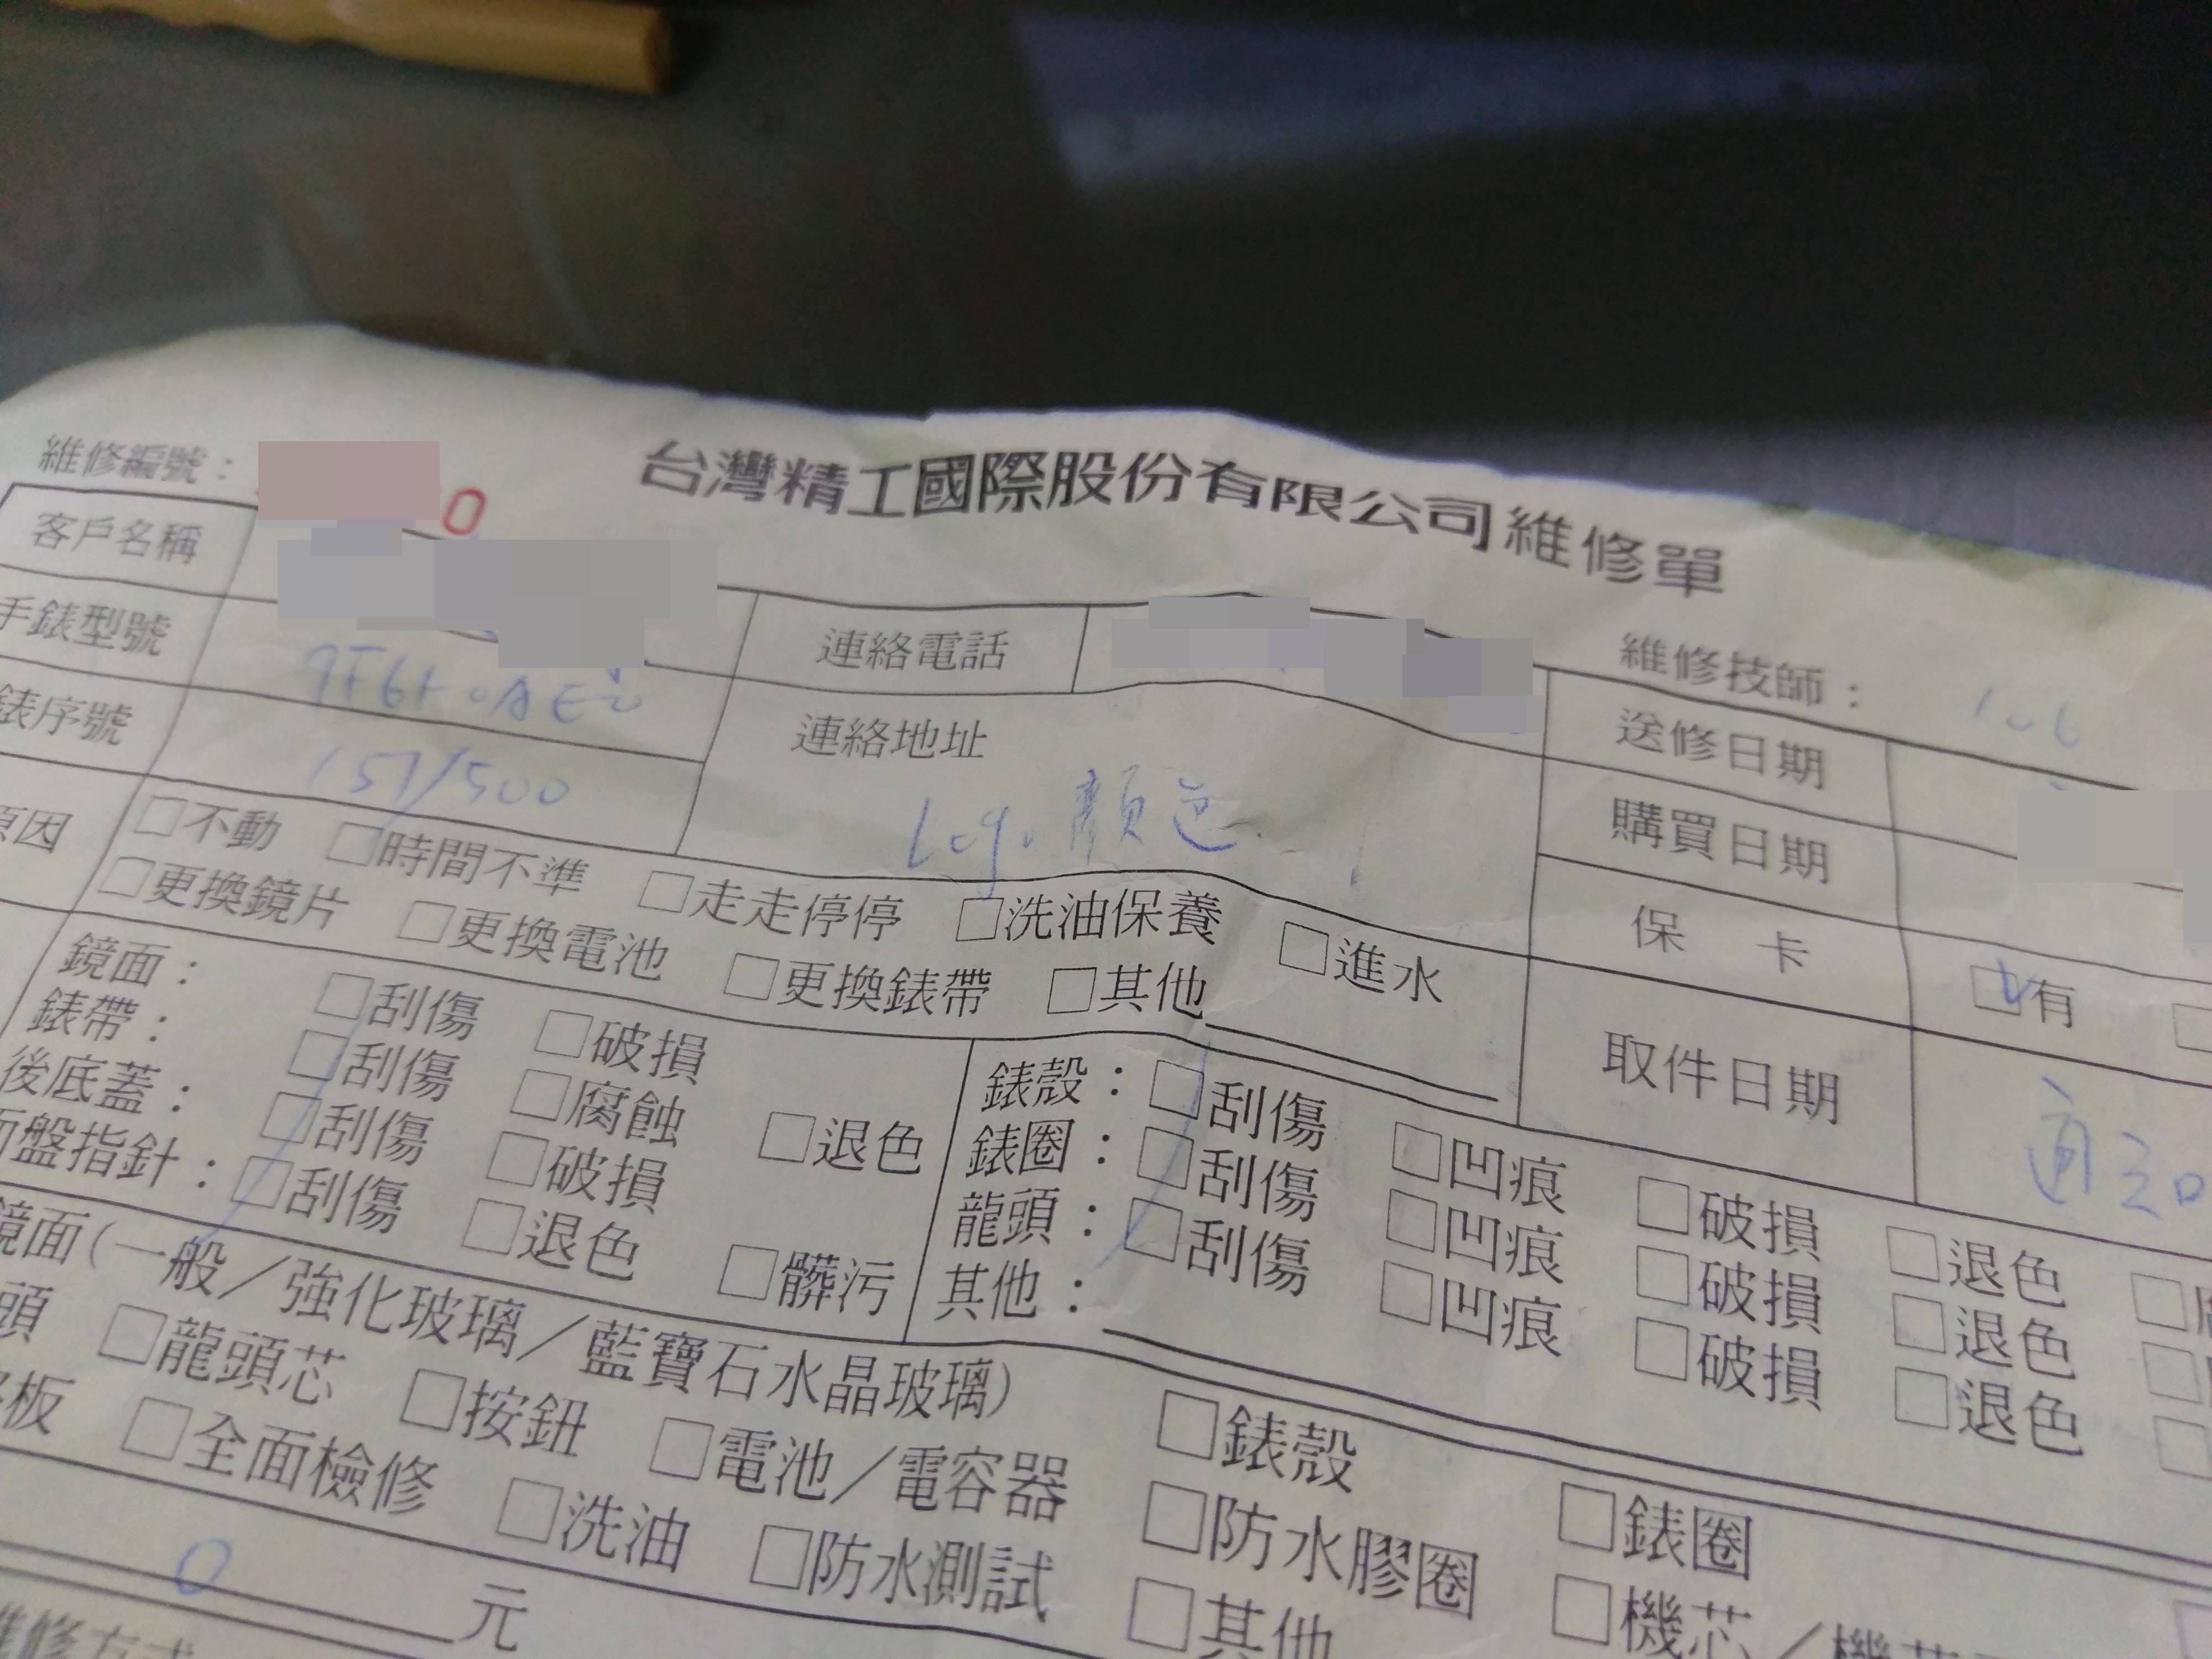 維修編號： 0
台灣精工國際股份有限公司維修單
維修技師：
客戶名稱
連絡電話
送修日期
手錶型號
連絡地址
購買日期
錶序號 157/500
Logo 顏色
保 卡 □有
原因 □不動 □時間不準 □走走停停 □洗油保養 □進水
□更換鏡片 □更換電池 □更換錶帶 □其他
取件日期 通知
鏡面： □刮傷 □破損
錶帶： □刮傷 □腐蝕 □退色
後底蓋： □刮傷 □破損
面盤指針： □刮傷 □退色 □髒污
錶殼： □刮傷 □凹痕 □破損 □退色
錶圈： □刮傷 □凹痕 □破損 □退色
龍頭： □刮傷 □凹痕 □破損 □退色
其他：
鏡面(一般／強化玻璃／藍寶石水晶玻璃) □錶殼 □錶圈
頭 □龍頭芯 □按鈕 □電池／電容器 □防水膠圈 □機芯／機芯
板 □全面檢修 □洗油 □防水測試 □其他
0 元
維修方式